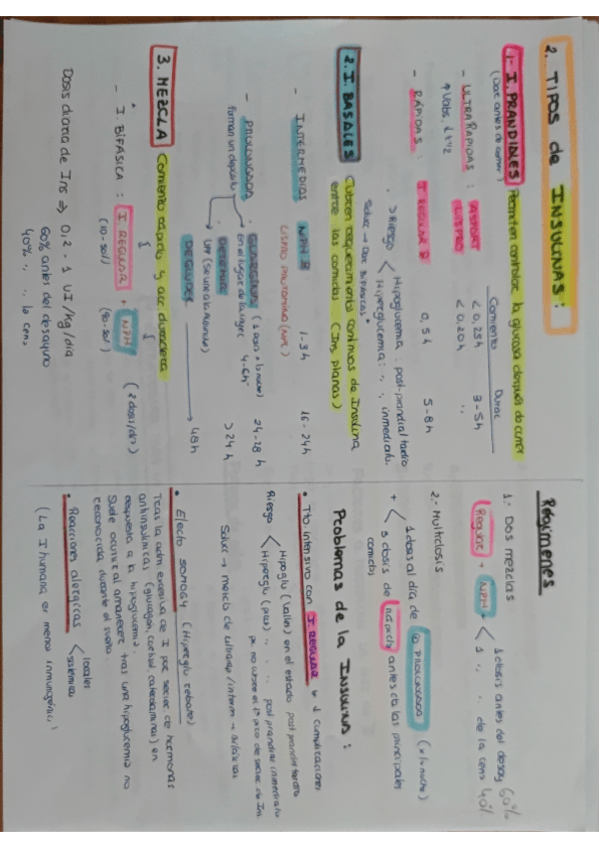 2. TIPOS de INSULINAS:
1. I. PRANDIALES Permiten controlar la glucosa después de comer
(Dar antes de comer)
Comienzo Durac
- ULTRARRAPIDAS: ASPART < 0,25h 3-5h
↑ Vabs, ↓ t 1/2 LISPRO < 0,20h "
- RÁPIDAS: I REGULAR R 0,5h 5-8h
> RIESGO < Hipoglucemia: post-prandial tardio
Hiperglucemia: " " inmediato.
Soluc → Dar BIFÁSICAS*
2. I. BASALES Cubren requerimientos continuos de Insulina
entre las comidas (Ins. planas)
- INTERMEDIAS NPH B 1-3h 16-24h
LISPRO PROTAMINA (NPL)
- PROLONGADAS GLARGINA (1 dosis x la noche) 24-28h
forman un depósito en el lugar de la inyec 4-6h
DETEMIR > 24h
UPP (se une a la Albumina)
DEGLUDEC → 48h
3. MEZCLA Comienzo rápido y acc duradera
- I. BIFÁSICA*: I REGULAR + NPH (2 dosis/día)
(10-50%) (90-50%)
Dosis diaria de Ins ⇒ 0,2 - 1 UI/Kg/día
60% antes del desayuno
40% " " la cena
Regímenes
1.- DOS mezclas
Regular + NPH < 1 dosis antes del desay 60%
1 " " de la cena 40%
2.- Multidosis
< 1 dosis al día de la PROLONGADAS (x la noche)
+ 3 dosis de rápida antes de las principales
comidas
Problemas de la INSULINA:
• Tto intensivo con I REGULAR ↓ complicaciones
Riesgo < Hipoglu (valles) en el estado postprandial tardio
Hiperglu (picos) " " " post prandial inmediato
pq no cubre el 1º pico de secrec de Ins.
Soluc → mezcla de ultrarap/interm → bifásicas
• Efecto somogy (Hiperglu rebote)
Tras la adm excesiva de I por secrec de hormonas
antiinsulínicas (glucagón, cortisol, catecolaminas) en
respuesta a la hipoglucemia.
Suele ocurrir al amanecer tras una hipoglucemia no
reconocida durante el sueño.
• Reacciones alérgicas < locales
sistémicas
(La I humana es menos inmunogénica)